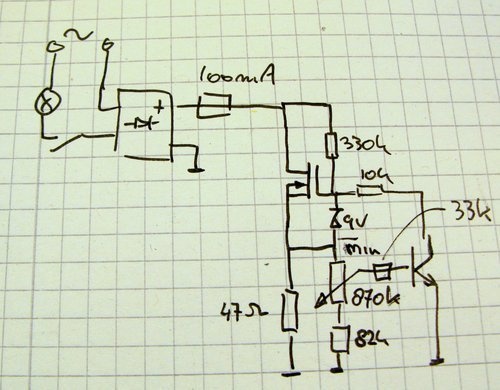 ~
100mA
+
330k
10k
9V
33k
min
47Ω
870k
82k